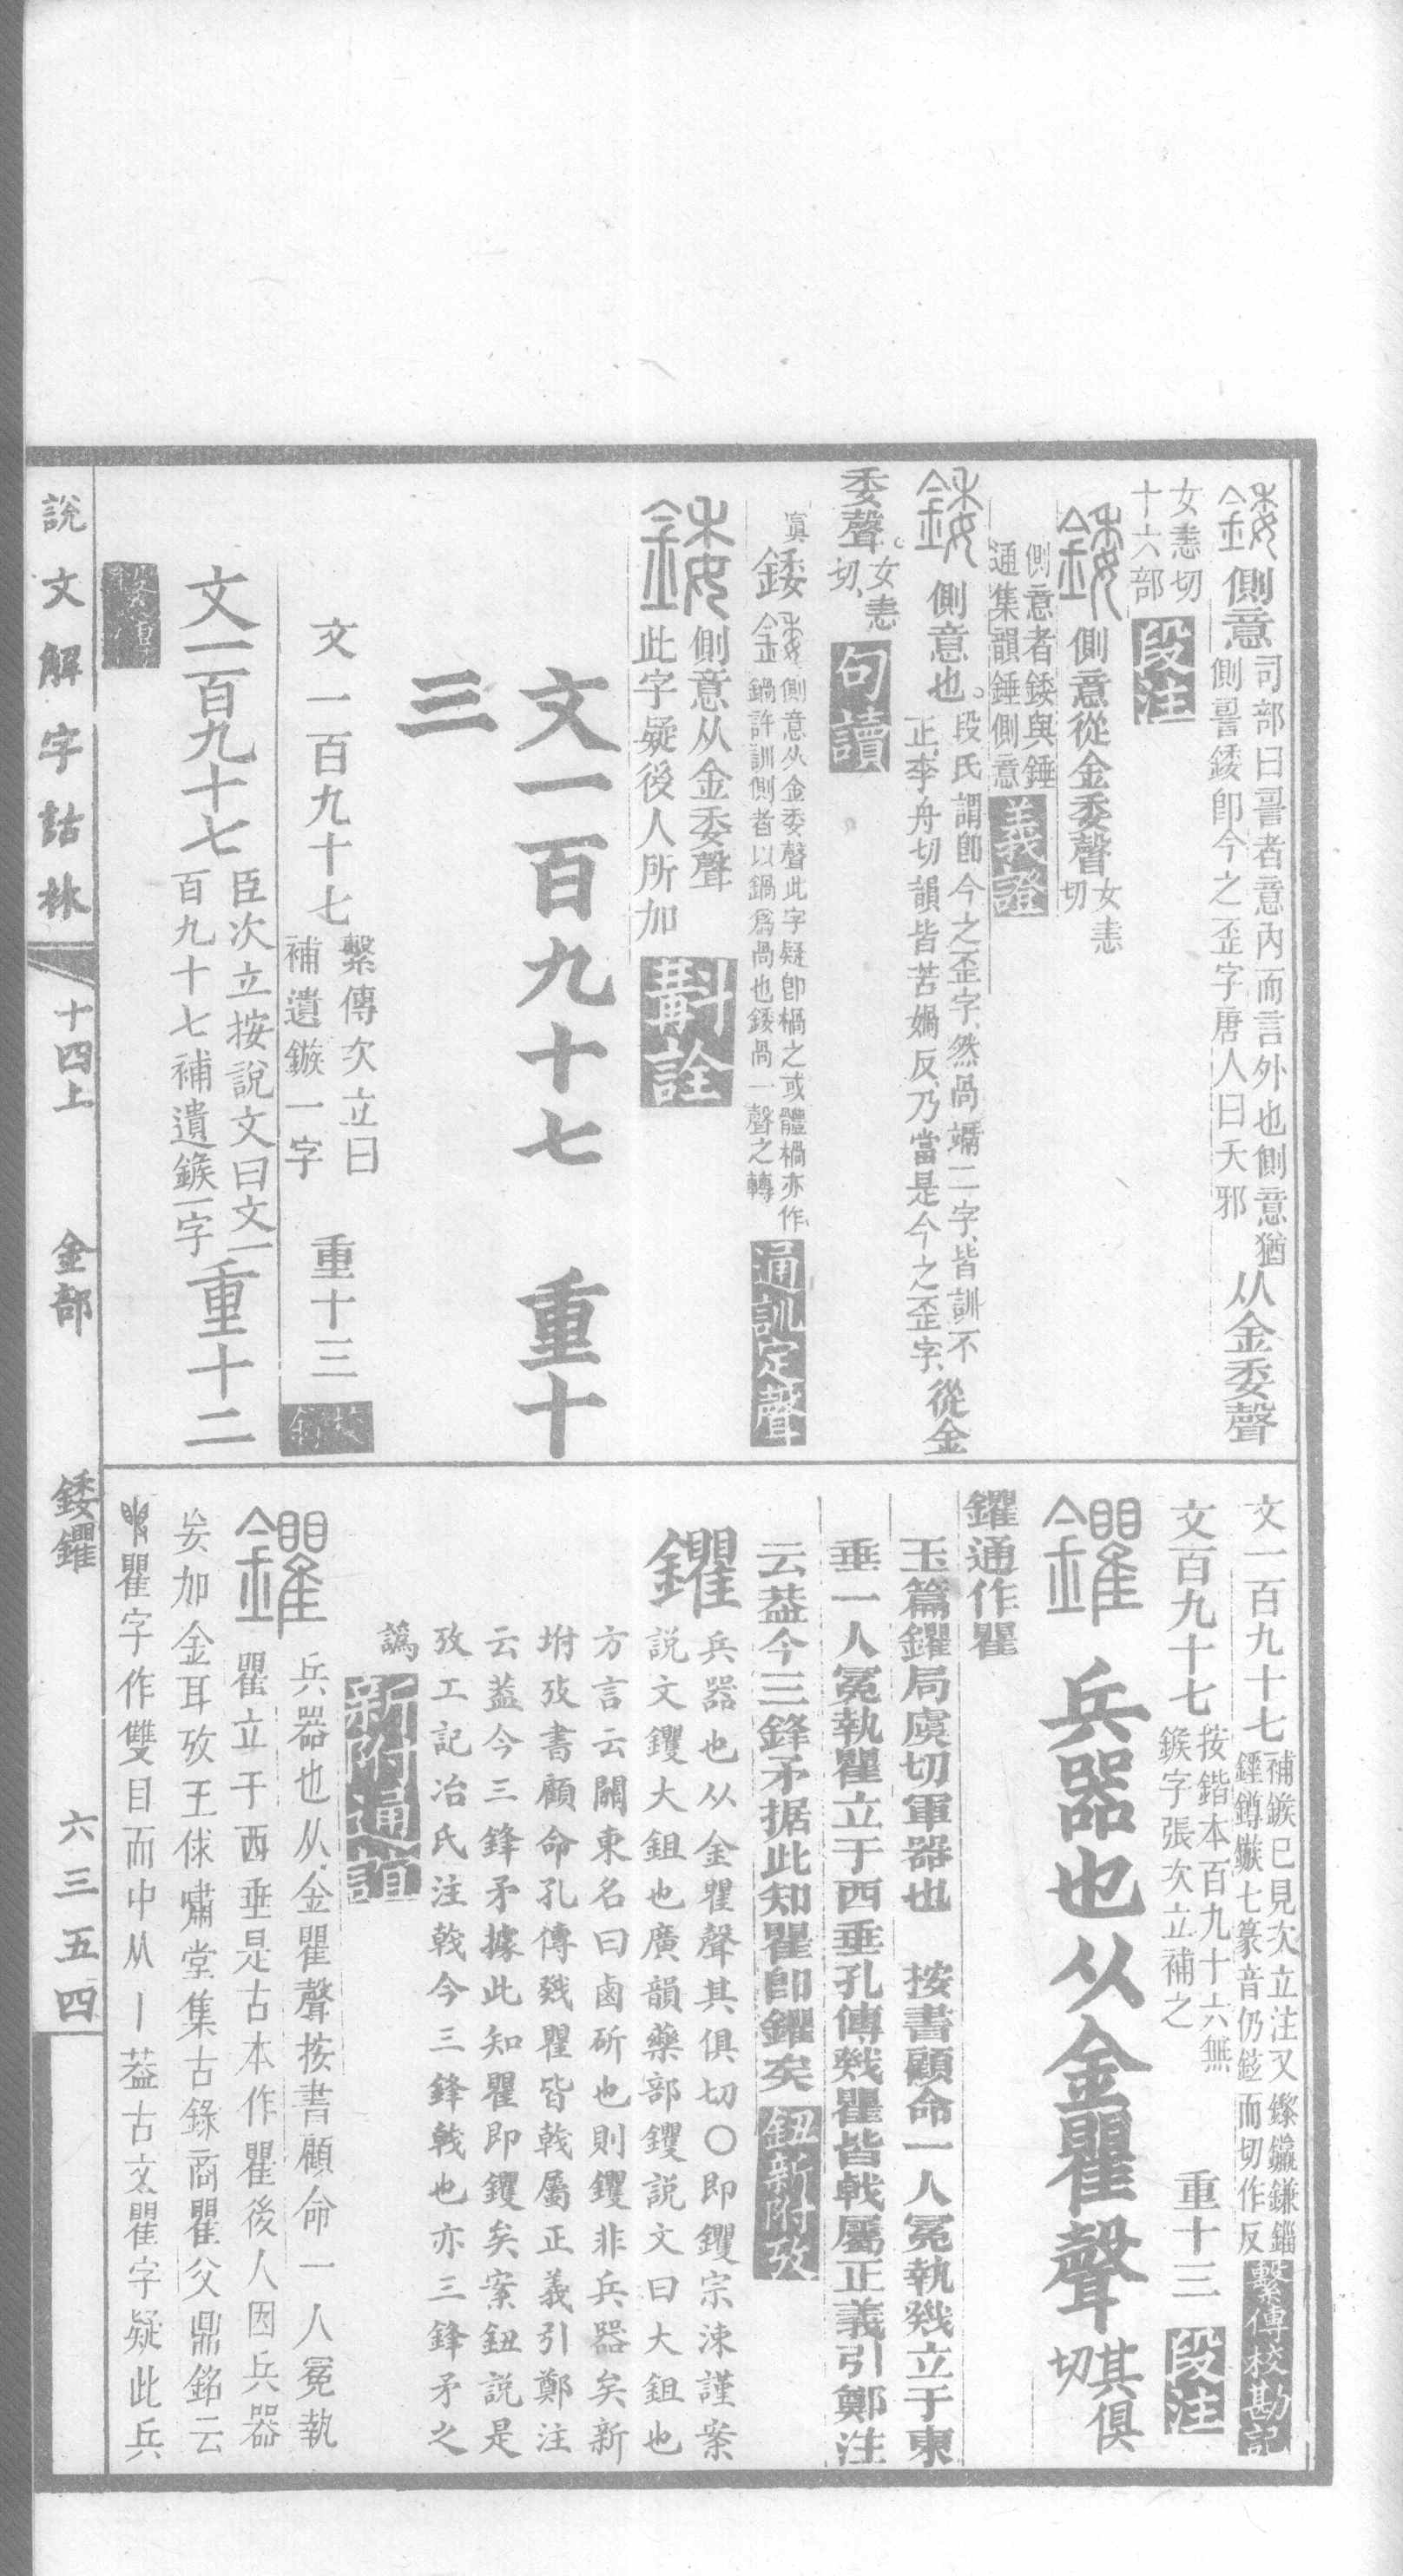 錗側意司部曰䛐者意內而言外也側意猶
側䛐錗卽今之歪字唐人曰夭邪从金委聲
女恚切
十六部段注
錗側意從金委聲女恚
切
側意者錗與錘
通集韻錘側意義證
錗側意也。段氏謂卽今之歪字、然咼竵二字、皆訓不
正、李舟切韻皆苦媧反、乃當是今之歪字、從金
委聲。女恚
切、句讀
錗側意从金委聲此字疑卽楇之或體楇亦作
鍋許訓側者以鍋爲咼也錗咼一聲之轉通訓定聲
錗側意从金委聲
此字疑後人所加斠詮
文一百九十七　重十
三
文一百九十七繫傳次立曰
補遺鏃一字　重十三校錄
文一百九十七臣次立按說文曰文一
百九十七補遺鏃一字重十二
繫傳
文一百九十七補鏃已見次立注又
鏗鐏鏃七篆音仍鉉而切作反繫傳校勘記
文百九十七按鍇本百九十六無
鏃字張次立補之　重十三段注
鑺　兵器也从金瞿聲其俱
切
鑺通作瞿
玉篇鑺局虞切軍器也　按書顧命一人冕執戣立于東
垂一人冕執瞿立于西垂孔傳戣瞿皆戟屬正義引鄭注
云葢今三鋒矛据此知瞿卽鑺矣鈕新附攷
鑺兵器也从金瞿聲其俱切〇即鑺宗涑謹案
說文钁大鉏也廣韻藥部钁說文曰大鉏也
方言云關東名曰鹵斫也則钁非兵器矣新
坿攷書顧命孔傳戣瞿皆戟屬正義引鄭注
云葢今三鋒矛據此知瞿即钁矣案鈕說是
攷工記冶氏注戟今三鋒戟也亦三鋒矛之
譌新附通誼
鑺兵器也从金瞿聲按書顧命一人冕執
瞿立于西垂是古本作瞿後人因兵器
妄加金耳攷王俅嘯堂集古錄商瞿父鼎銘云
瞿字作雙目而中从丨葢古文瞿字疑此兵
說文解字詁林　十四上　金部　錗鑺　六三五四